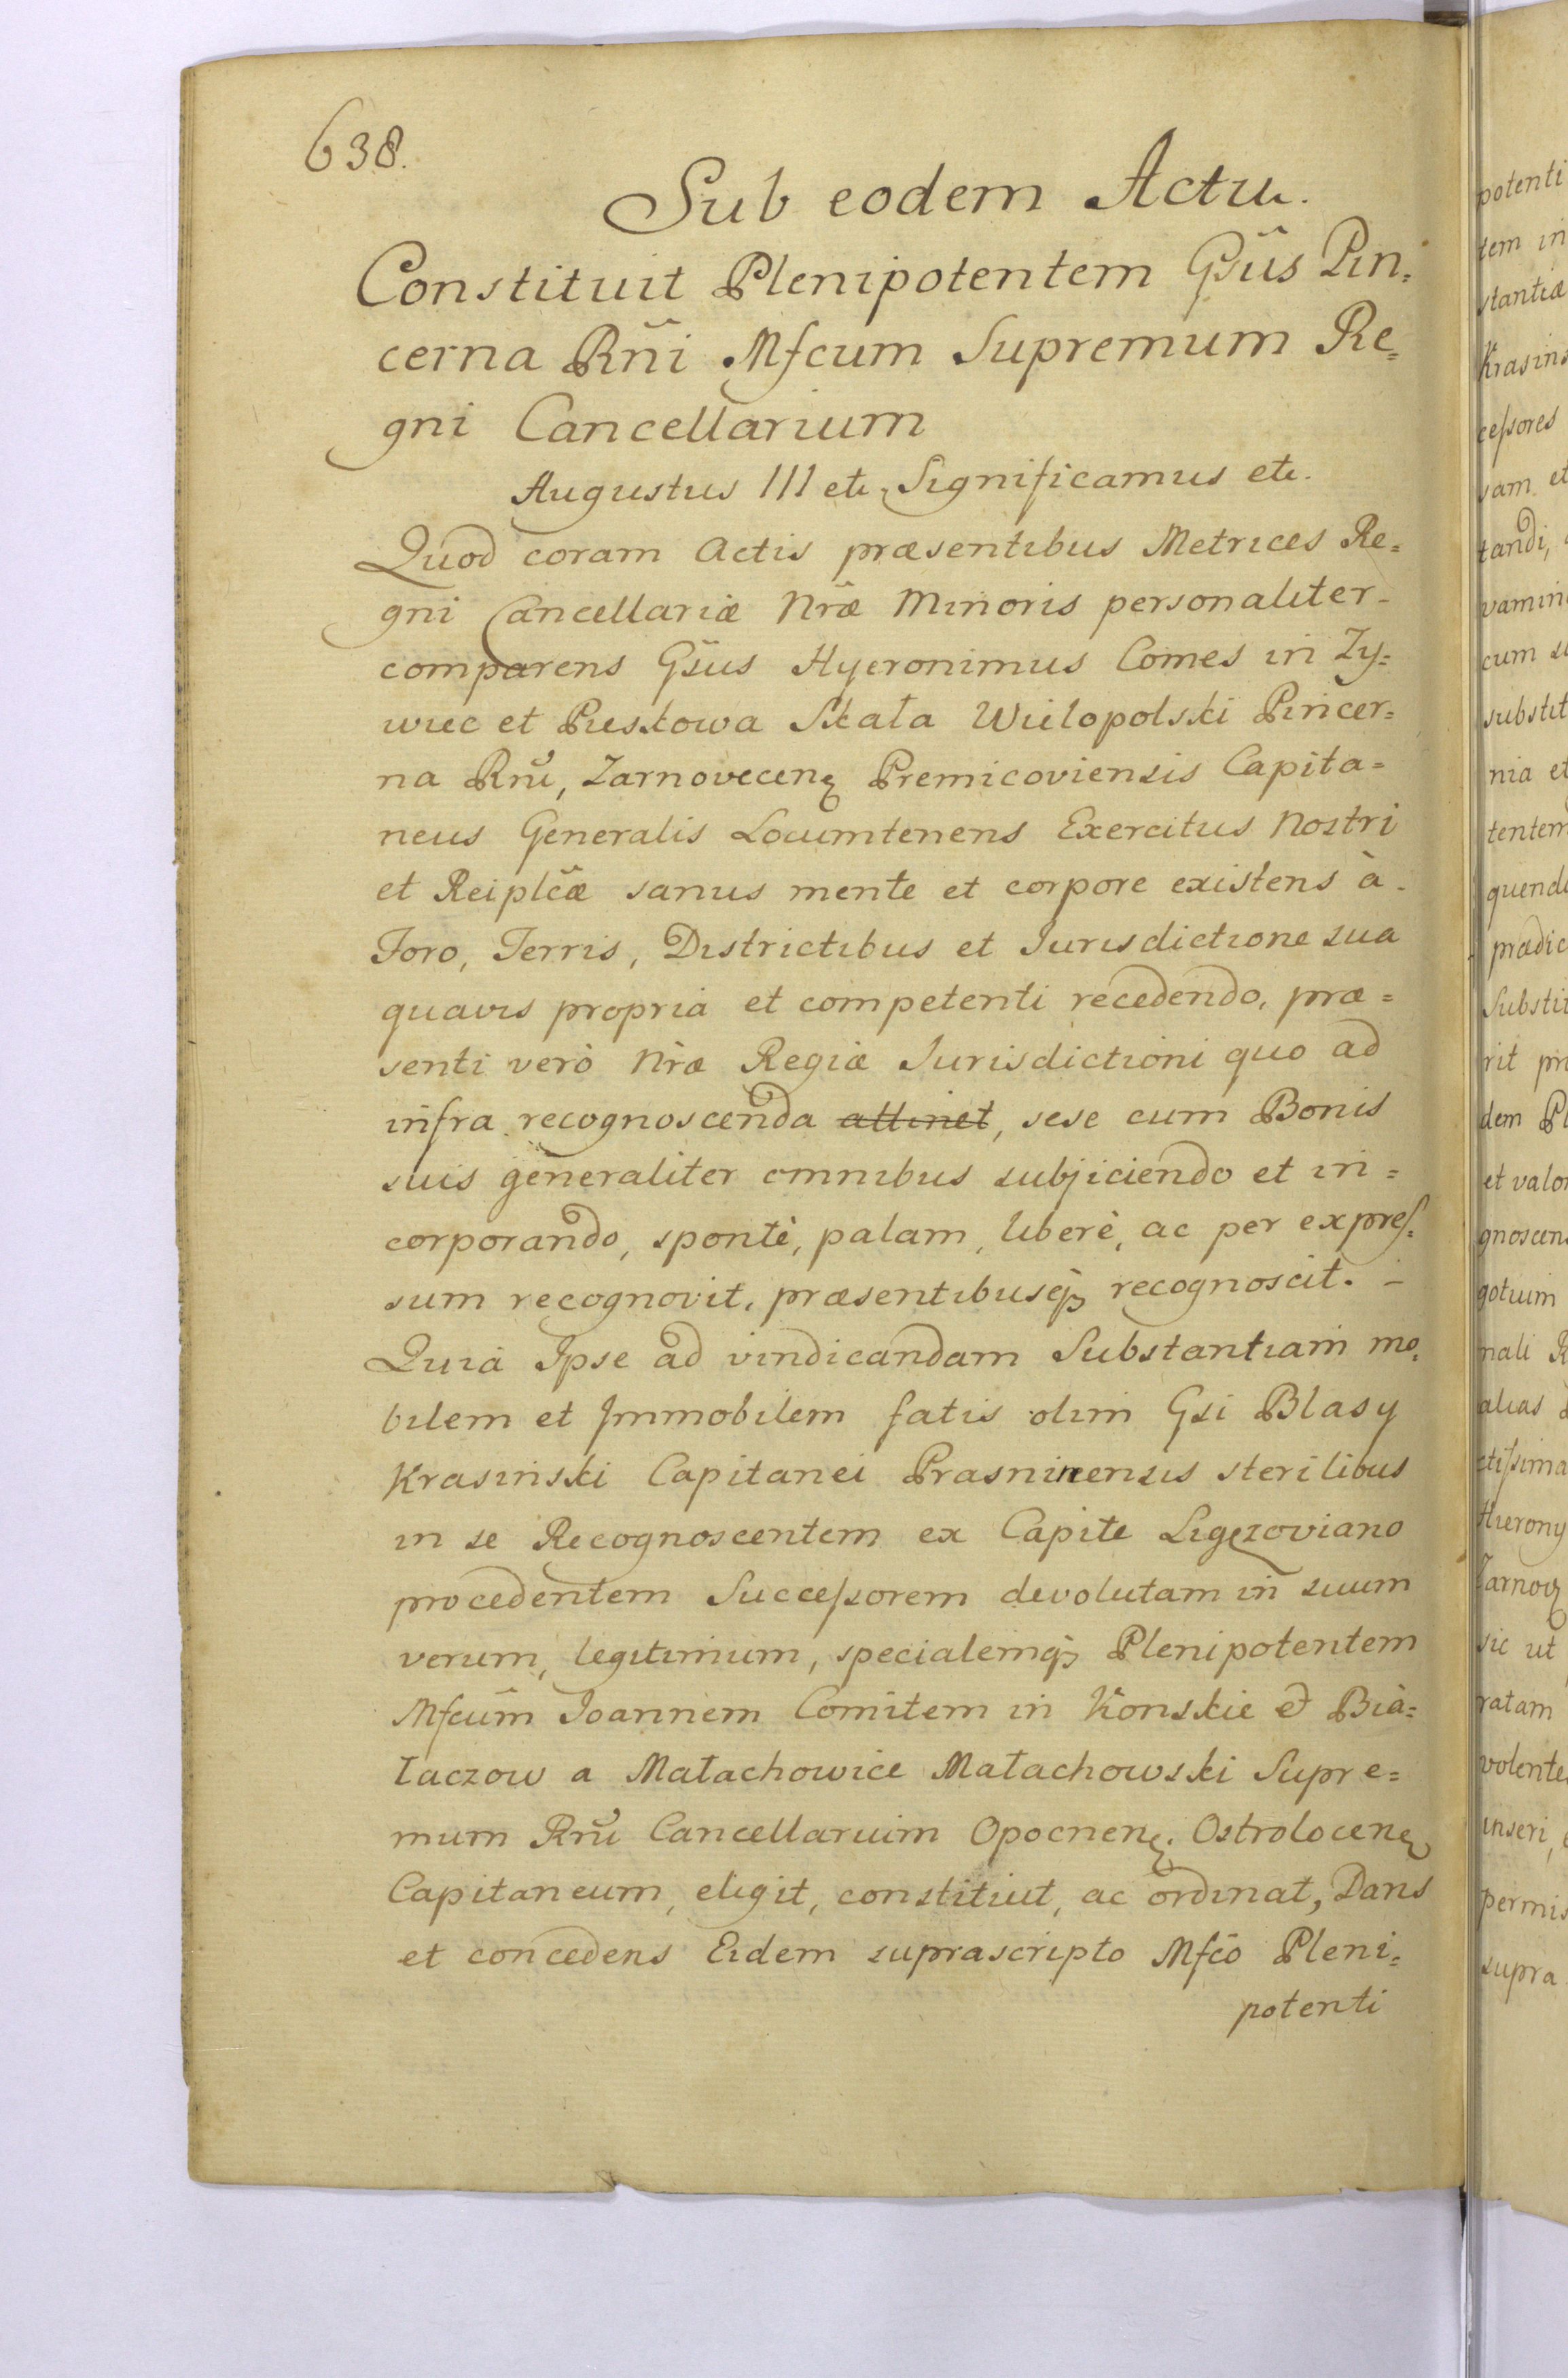 638.
Sub eodem Actu.
Constituit Plenipotentem Gsũs Pin=
cerna Rñi Mfcum Supremum Re=
gni Cancellarium
Augustus III etc. Significamus etc.
Quod coram Actis præsentibus Metrices Re=
gni Cancellariæ Nræ Minoris personaliter
comparens Gsus Hyeronimus Comes in Zy=
wiec et Pieskowa Skała Wielopolski Pincer=
na Rni, Zarnovecens Premicoviensis Capita=
neus Generalis Locumtenens Exercitus Nostri
et Reiplcæ sanus mente et corpore existens à
Foro, Terris, Districtibus et Jurisdictione sua
quavis propria et competenti recedendo, præ=
senti verò Nræ Regiæ Jurisdictioni quo ad
infra recognoscenda attinet, sese cum Bonis
suis generaliter omnibus subjiciendo et in=
corporando, spontè, palam, liberè, ac per expres=
sum recognovit, præsentibusq recognoscit. -
Quia Ipse ad vindicandam Substantiam mo=
bilem et Immobilem fatis olim Gsi Blasy
Krasinski Capitanei Prasninensis sterilibus
in se Recognoscentem ex Capite Ligęzoviano
procedentem Successorem devolutam in suum
verum, legitimum, specialemq Plenipotentem
Mfcum Joannem Comitem in Konskie et Bia=
łaczow a Małachowice Małachowski Supre=
mum Rni Cancellarium Opocnens. Ostrolocens
Capitaneum, eligit, constituit, ac ordinat, Dans
et concedens Eidem suprascripto Mfco Pleni=
potenti
potenti
tem in
stantiæ
Krasins
cessores
sam et
tandi,
vamin
cum su
substit
nia et
tentem
quend
prædic
Substit
rit pr
dem Pl
et valo
gnoscen
gotium
nali R
alias
ctissima
Hierony
Zarnov
sic ut
ratam
volente
inseri,
permis
supra